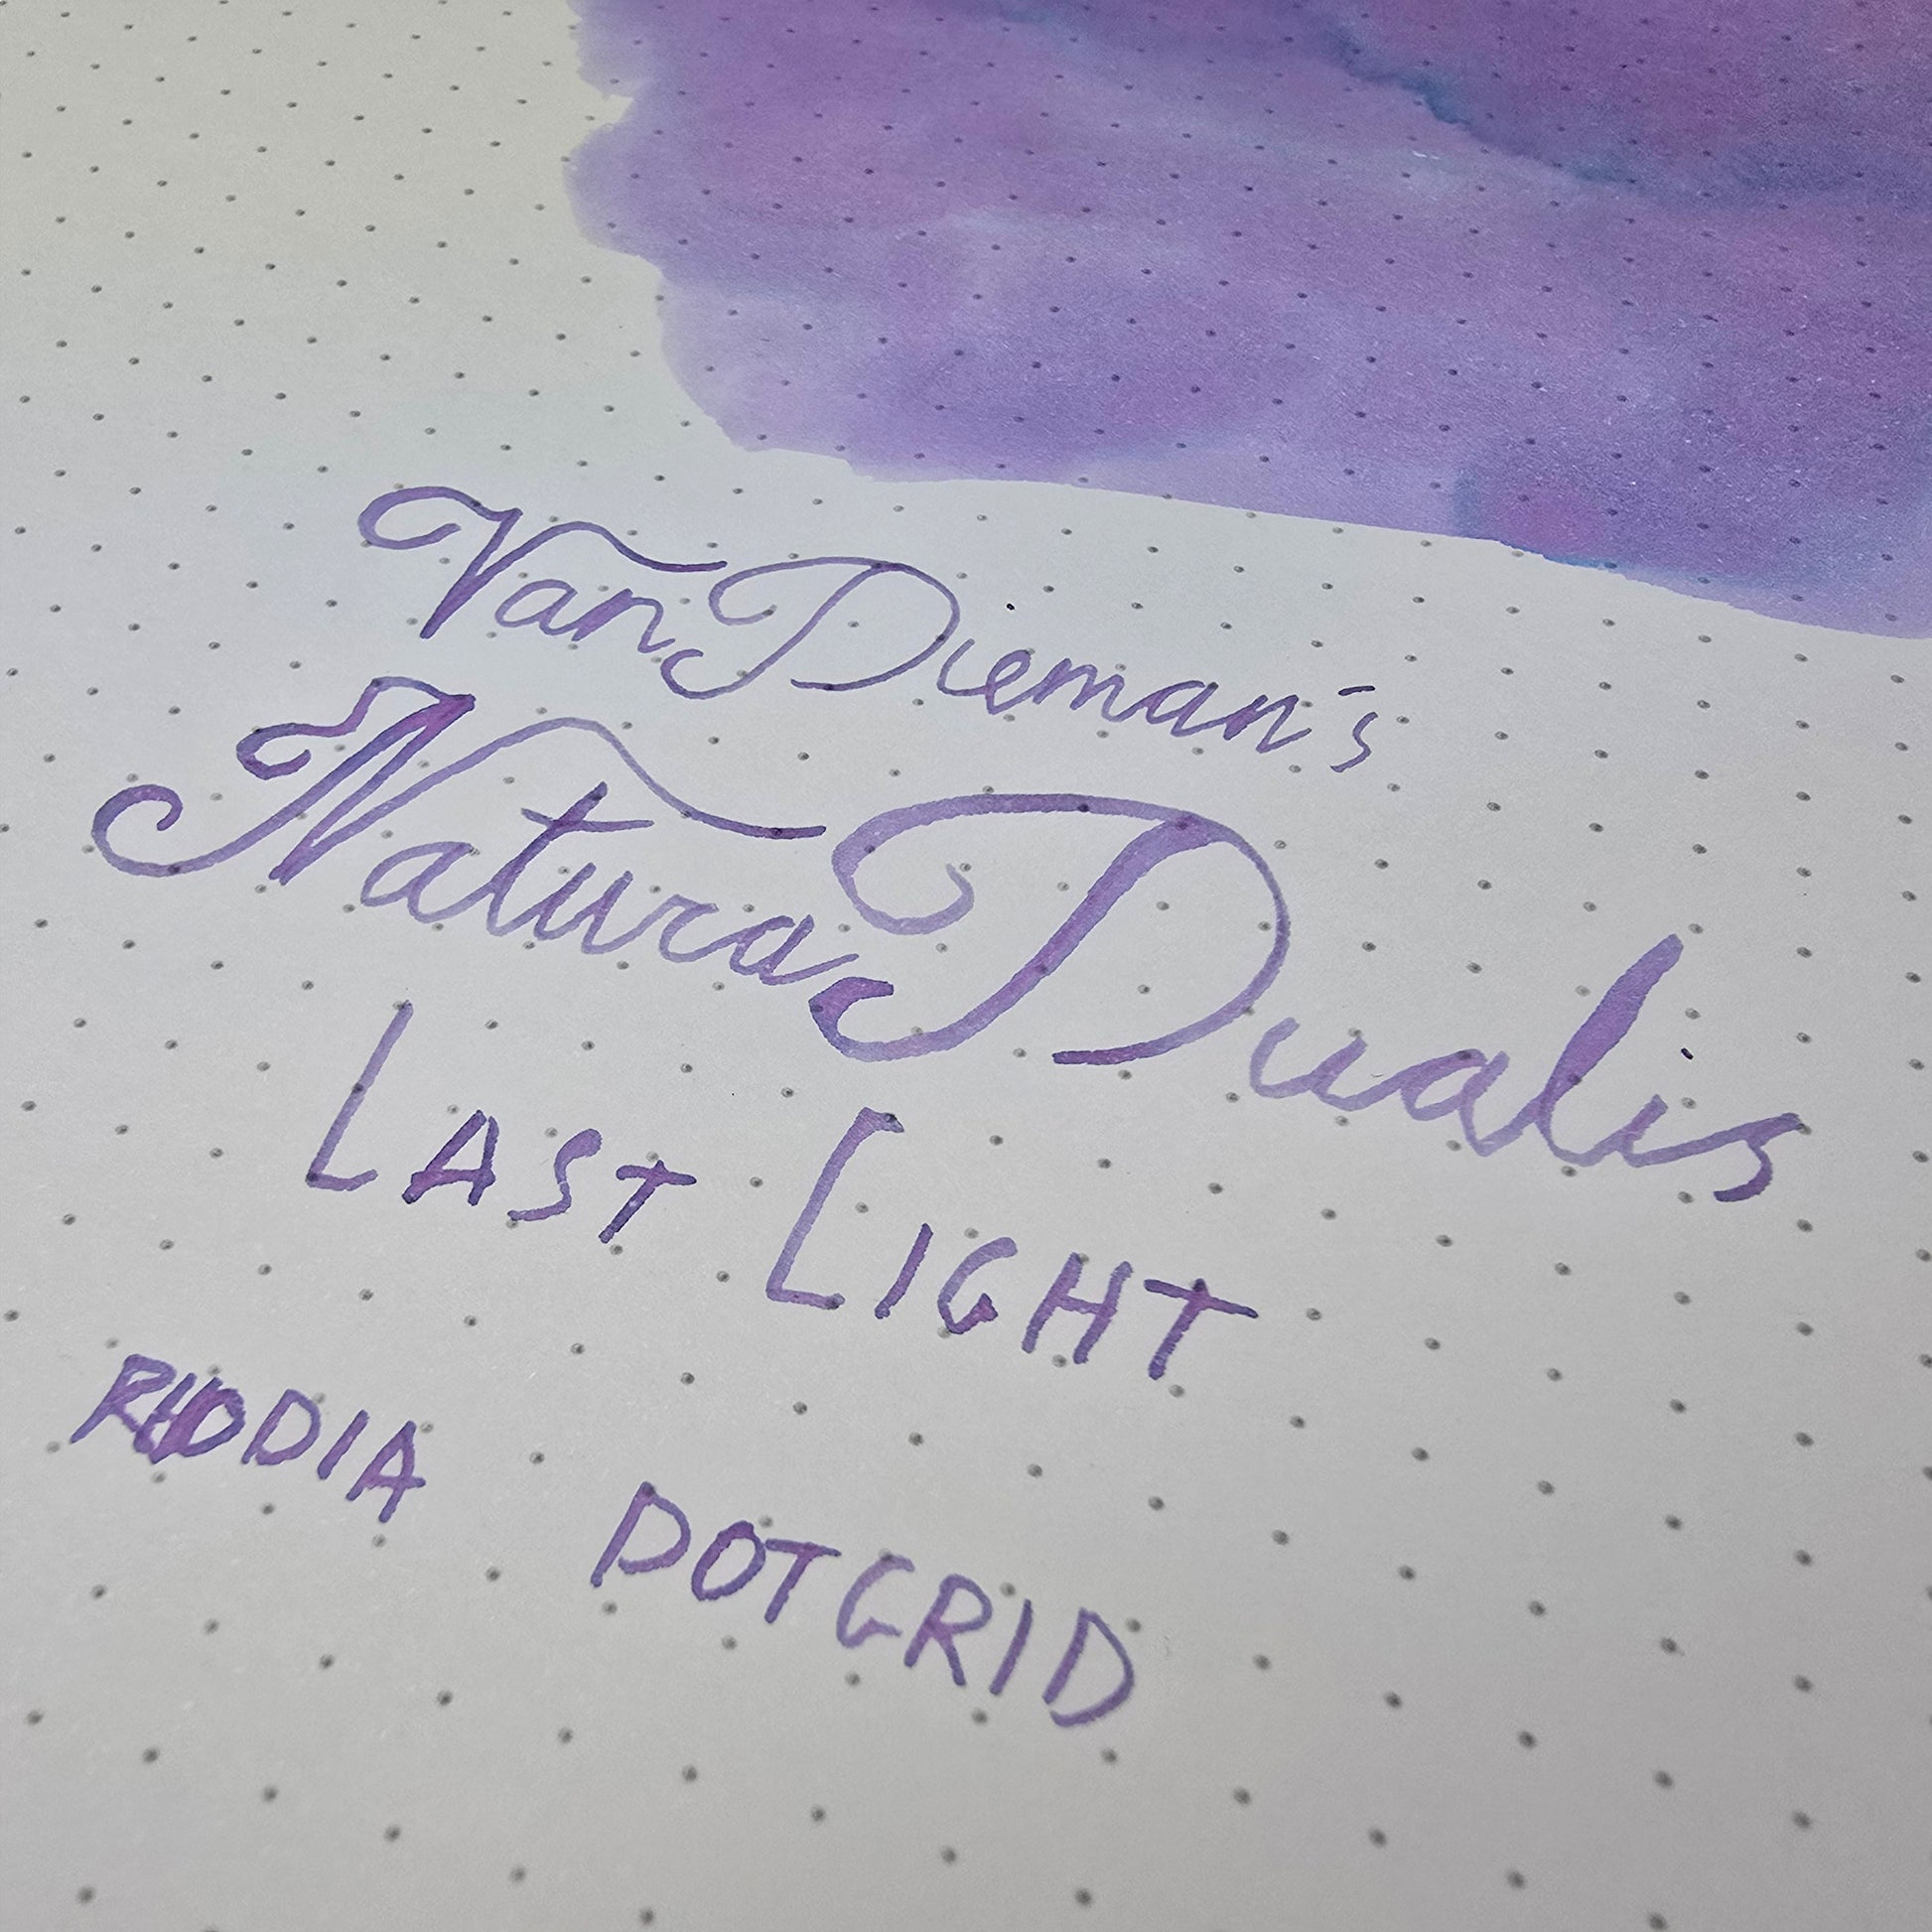 Van Dieman's
Natura Dualis
LAST LIGHT
RHODIA DOTGRID